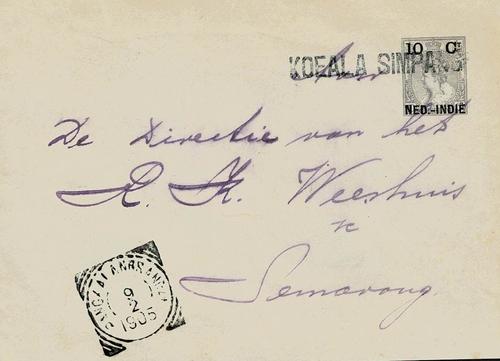 10 Ct
KOEALA SIMPANG
NED.-INDIE
Aan
De Directie van het
R. K. Weeshuis
te
Semarang
9
2
1905